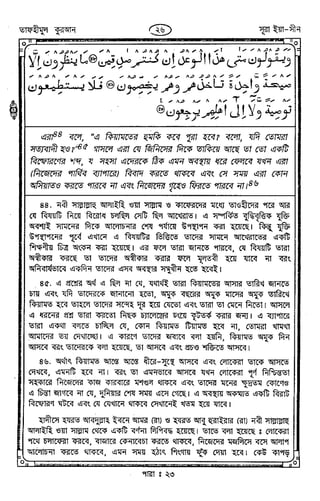 তাফহীমুল কুরআন
২৬
সূরা ইয়া-সীন
وَيَقُولُونَ مَتَىٰ هَٰذَا الْوَعْدُ إِن كُنتُمْ صَٰدِقِينَ ﴿٤٨﴾ مَا يَنظُرُونَ إِلَّا
صَيْحَةً وَاحِدَةً تَأْخُذُهُمْ وَهُمْ يَخِصِّمُونَ ﴿٤٩﴾ فَلَا يَسْتَطِيعُونَ
تَوْصِيَةً وَلَا إِلَىٰ أَهْلِهِمْ يَرْجِعُونَ ﴿٥٠﴾
এরা৪৪ বলে, “এ কিয়ামতের হুমকি কবে পুরা হবে? বলো, যদি তোমরা
সত্যবাদী হও?”৪৫ আসলে এরা যে জিনিসের দিকে তাকিয়ে আছে তা তো একটি
বিস্ফোরণের শব্দ, যা সহসা এদেরকে ঠিক এমন অবস্থায় ধরে ফেলবে যখন এরা
(নিজেদের পার্থিব ব্যাপারে) বিবাদ করতে থাকবে এবং সে সময় এরা কোন
অসিয়াতও করতে পারবে না এবং নিজেদের গৃহেও ফিরতে পারবে না।৪৬
৪৪. নবী সাল্লাল্লাহু আলাইহি ওয়া সাল্লাম ও কাফেরদের মধ্যে তাওহীদের পরে আর
যে বিষয়টি নিয়ে বিরোধ চলছিল সেটি ছিল আখেরাত। এ সম্পর্কিত যুক্তিবৃত্তিক যুক্তি
অবশ্যই সামনের দিকে আলোচনার শেষ পর্যায়ে উপস্থাপন করা হয়েছে। কিন্তু যুক্তি
উপস্থাপনের পূর্বে এখানে এ বিষয়টির ভিত্তিতে তাদের সামনে আখেরাতের একটি
শিক্ষণীয় চিত্র অংকন করা হয়েছে। এর ফলে তারা জানতে পারবে, যে বিষয়টি তারা
অস্বীকার করছে তা তাদের অস্বীকার করার ফলে মূলতবী হয়ে যাবে না বরং
অনিবার্যভাবে একদিন তাদের এসব অবস্থার সম্মুখীন হতে হবেই।
৪৫. এ প্রশ্নের অর্থ এ ছিল না যে, যথার্থই তারা কিয়ামতের আসার তারিখ জানতে
চায় এবং যদি তাদেরকে জানানো হতো, অমুক বছরের অমুক মাসের অমুক তারিখে
কিয়ামত হবে তাহলে তাদের সন্দেহ দূর হয়ে যেতো এবং তারা তা মেনে নিতো। আসলে
এ ধরনের প্রশ্ন তারা করতো নিছক চ্যালেঞ্জের ঢংয়ে কূটতর্ক করার জন্য। এ ব্যাপারে
তারা একথা বলতে চাচ্ছিল যে, কোন কিয়ামত টিয়ামত হবে না, তোমরা খামখা
আমাদের ভয় দেখাচ্ছো। এ কারণে তাদের জবাবে বলা হয়নি, কিয়ামত অমুক দিন
আসবে বরং তাদেরকে বলা হয়েছে, তা আসবে এবং প্রচণ্ড শক্তিতে আসবে।
৪৬. অর্থাৎ কিয়ামত আস্তে আস্তে ধীরে-সুস্থে আসবে এবং লোকেরা তাকে আসতে
দেখবে, এমনটি হবে না। বরং তা এমনভাবে আসবে যখন লোকেরা পূর্ণ নিশ্চিন্ততা
সহকারে নিজেদের কাজ কারবারে মশগুল থাকবে এবং তাদের মনের ক্ষুদ্রতম কোণেও
এ চিন্তা জাগবে না যে, দুনিয়ার শেষ সময় এসে গেছে। এ অবস্থায় অকস্মাত একটি বিরাট
বিস্ফোরণ ঘটবে এবং যে যেখানে থাকবে সেখানেই খতম হয়ে যাবে।
হাদীসে হযরত আবদুল্লাহ ইবনে আমর (রা) ও হযরত আবু হুরাইরার (রা) নবী সাল্লাল্লাহু
আলাইহি ওয়া সাল্লাম থেকে একটি বর্ণনা লিপিবদ্ধ হয়েছে। তাতে বলা হয়েছে ঃ লোকেরা
পথে চলাফেরা করবে, বাজারে কেনাবেচা করতে থাকবে, নিজেদের মজলিসে বসে আলাপ
আলোচনা করতে থাকবে, এমন সময় হঠাৎ শিংগায় ফুঁক দেয়া হবে। কেউ কাপড়
পারা ঃ ২৩